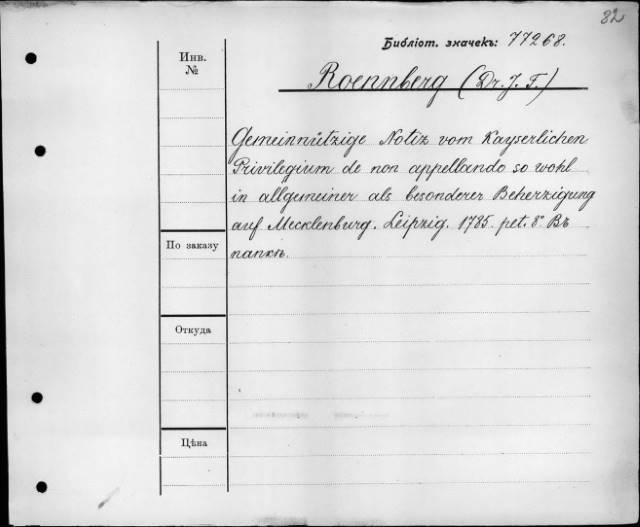 82
Библіот. значекъ: 77268.
Инв.
№
Roennberg (Dr. J. F.)
Gemeinnützige Notiz vom Kayserlichen
Privilegium de non appellando so wohl
in allgemeiner als besonderer Beherzigung
auf Mecklenburg. Leipzig. 1785. pet. 8° Въ
папкѣ.
По заказу
Откуда
Цѣна